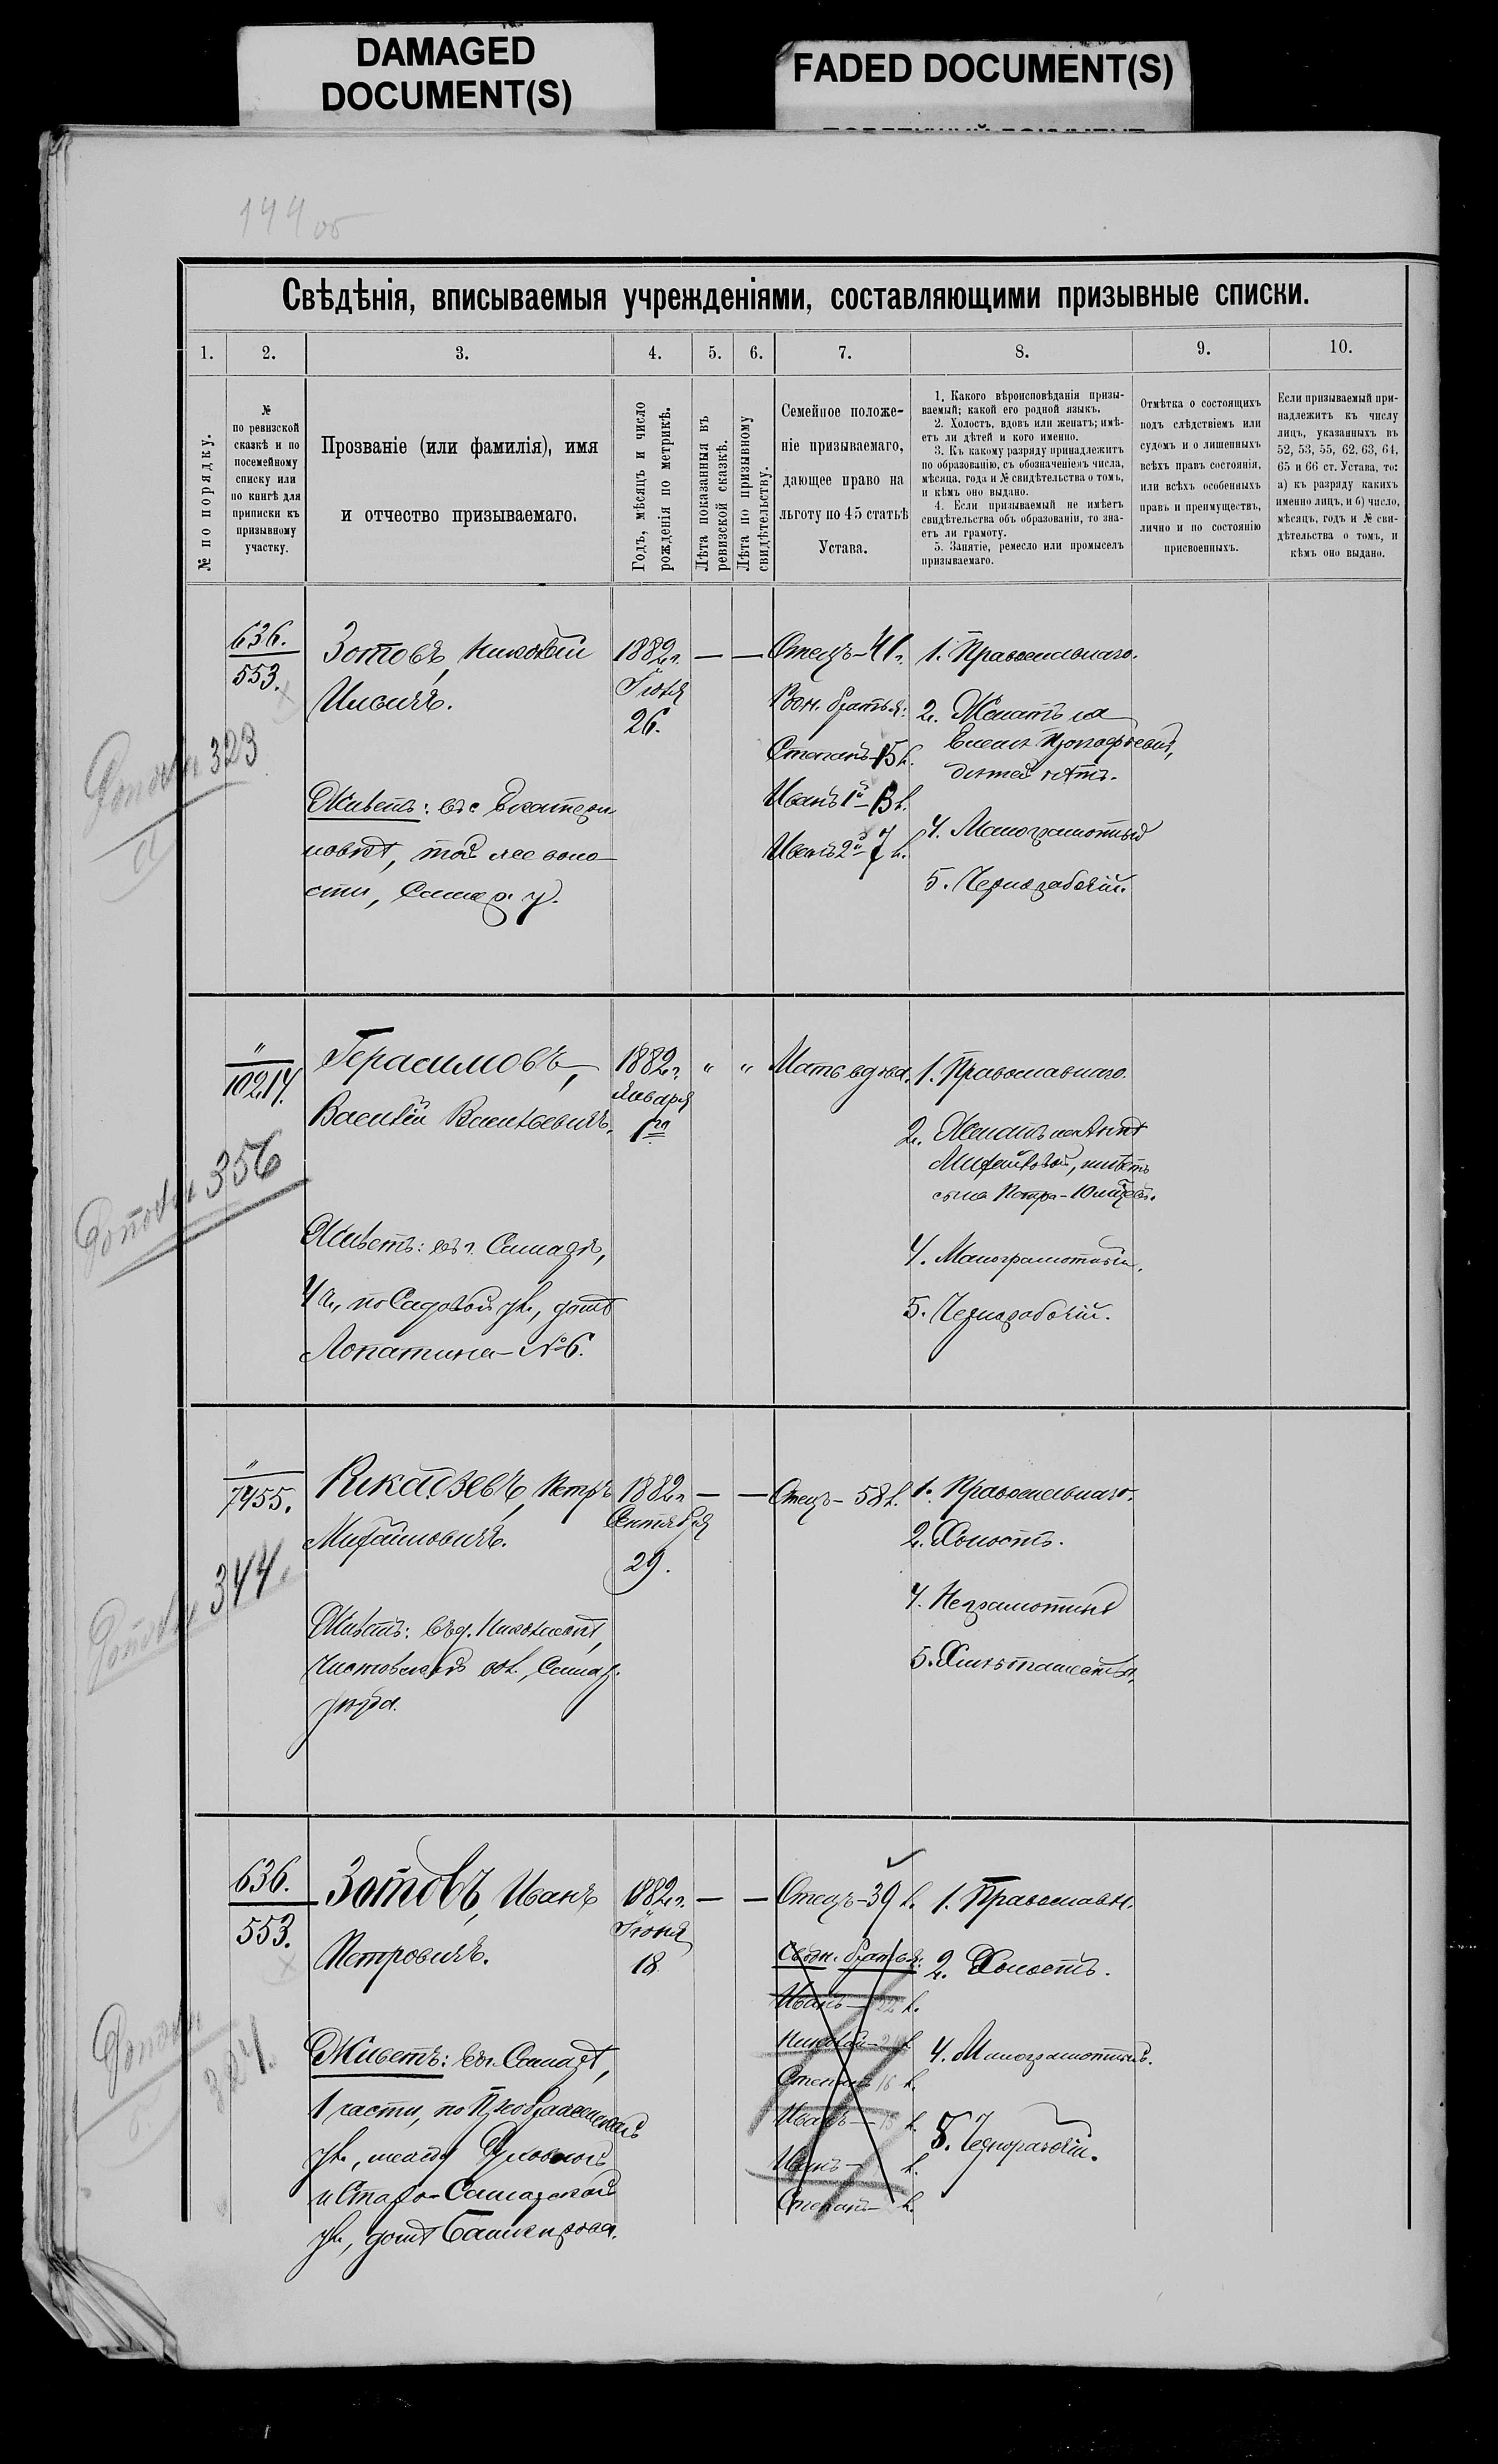 DAMAGED
DOCUMENT(S)
FADED DOCUMENT(S)
144 об
Свѣдѣнія, вписываемыя учрежденіями, составляющими призывные списки.
1. 2. 3. 4. 5. 6. 7. 8. 9. 10.
№ по порядку.
№
по ревизской
сказкѣ и по
посемейному
списку или
по книгѣ для
приписки къ
призывному
участку.
Прозваніе (или фамилія), имя
и отчество призываемаго.
Годъ, мѣсяцъ и число
рожденія по метрикѣ.
Лѣта показанныя въ
ревизской сказкѣ.
Лѣта по призывному
свидѣтельству.
Семейное положе-
ніе призываемаго,
дающее право на
льготу по 45 статьѣ
Устава.
1. Какого вѣроисповѣданія призы-
ваемый; какой его родной языкъ.
2. Холостъ, вдовъ или женатъ; имѣ-
етъ ли дѣтей и кого именно.
3. Къ какому разряду принадлежитъ
по образованію, съ обозначеніемъ числа,
мѣсяца, года и № свидѣтельства о томъ,
и кѣмъ оно выдано.
4. Если призываемый не имѣетъ
свидѣтельства объ образованіи, то зна-
етъ ли грамоту.
5. Занятіе, ремесло или промыселъ
призываемаго.
Отмѣтка о состоящихъ
подъ слѣдствіемъ или
судомъ и о лишенныхъ
всѣхъ правъ состоянія,
или всѣхъ особенныхъ
правъ и преимуществъ,
лично и по состоянію
присвоенныхъ.
Если призываемый при-
надлежитъ къ числу
лицъ, указанныхъ въ
52, 53, 55, 62, 63, 64,
65 и 66 ст. Устава, то:
а) къ разряду какихъ
именно лицъ, и б) число,
мѣсяцъ, годъ и № сви-
дѣтельства о томъ, и
кѣмъ оно выдано.
636.
553.
323
Зотовъ, Николай
Ильичъ.
Живетъ: въ с. Екатери-
новкѣ, той же воло-
сти, Самар. у.
1882 г.
Іюня
26.
— —
Отецъ – 41 г.
Род. братья:
Степанъ – 15 л.
Иванъ 1й – 13 л.
Иванъ 2й – 7 л.
1. Православнаго.
2. Женатъ на
Еленѣ
дѣтей нѣтъ.
4. Малограмотный
5. Чернорабочій.
"
10214.
356
Герасимовъ,
Василій Васильевичъ.
Живетъ: въ г. Самарѣ,
4 ч., по Садовой ул., домъ
Лопатина – № 6.
1882 г.
Января
1го
" "
Мать вдова.
1. Православнаго.
2. Женатъ на Аннѣ
Михайловой, имѣетъ
сына Петра – 10 мѣсяц.
4. Малограмотный.
5. Чернорабочій.
"
7455.
344
Петръ
Михайловичъ.
Живетъ: въ д. Николаевкѣ,
вол., Самар.
уѣзда.
1882 г.
Сентября
29.
— —
Отецъ – 58 л.
1. Православнаго.
2. Холостъ.
4. Неграмотный
5. Хлѣбопашество.
636.
553.
324.
Зотовъ, Иванъ
Петровичъ.
Живетъ: въ г. Самарѣ,
1 части, по Преображенской
ул., между
и Старо-Самарской
ул., домъ Башкирова.
1882 г.
Іюня
18
— —
Отецъ – 39 л.
братья:
Иванъ – 22 л.
Николай – 21 л.
Степанъ 16 л.
Иванъ – 13 л.
Иванъ – л.
Степанъ – л.
1. Православн.
2. Холостъ.
4. Малограмотный.
5. Чернорабочій.